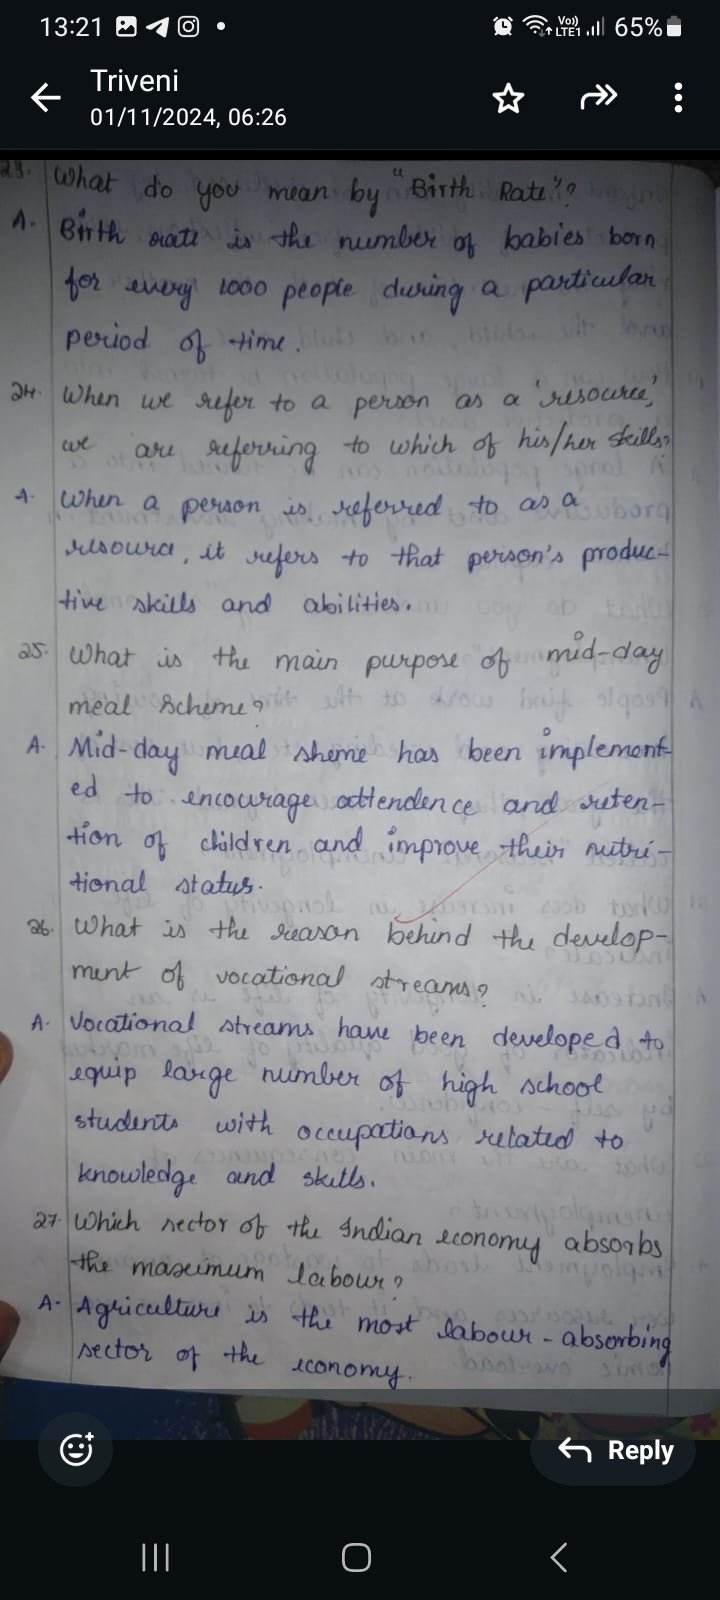 13:21
Vo))
LTE1
65%
Triveni
01/11/2024, 06:26
23. What do you mean by "Birth Rate"?
A. Birth rate is the number of babies born
for every 1000 people during a particular
period of time.
24. When we refer to a person as a 'resource,'
we are referring to which of his/her skills?
A. When a person is referred to as a
resource, it refers to that person's produc-
tive skills and abilities.
25. What is the main purpose of mid-day
meal scheme?
A. Mid-day meal sheme has been implement-
ed to encourage attendence and reten-
tion of children and improve their nutri-
tional status.
26. What is the reason behind the develop-
ment of vocational streams?
A. Vocational streams have been developed to
equip large number of high school
students with occupations related to
knowledge and skills.
27. Which sector of the Indian economy absorbs
the maximum labour?
A- Agriculture is the most labour-absorbing
sector of the economy.
Reply